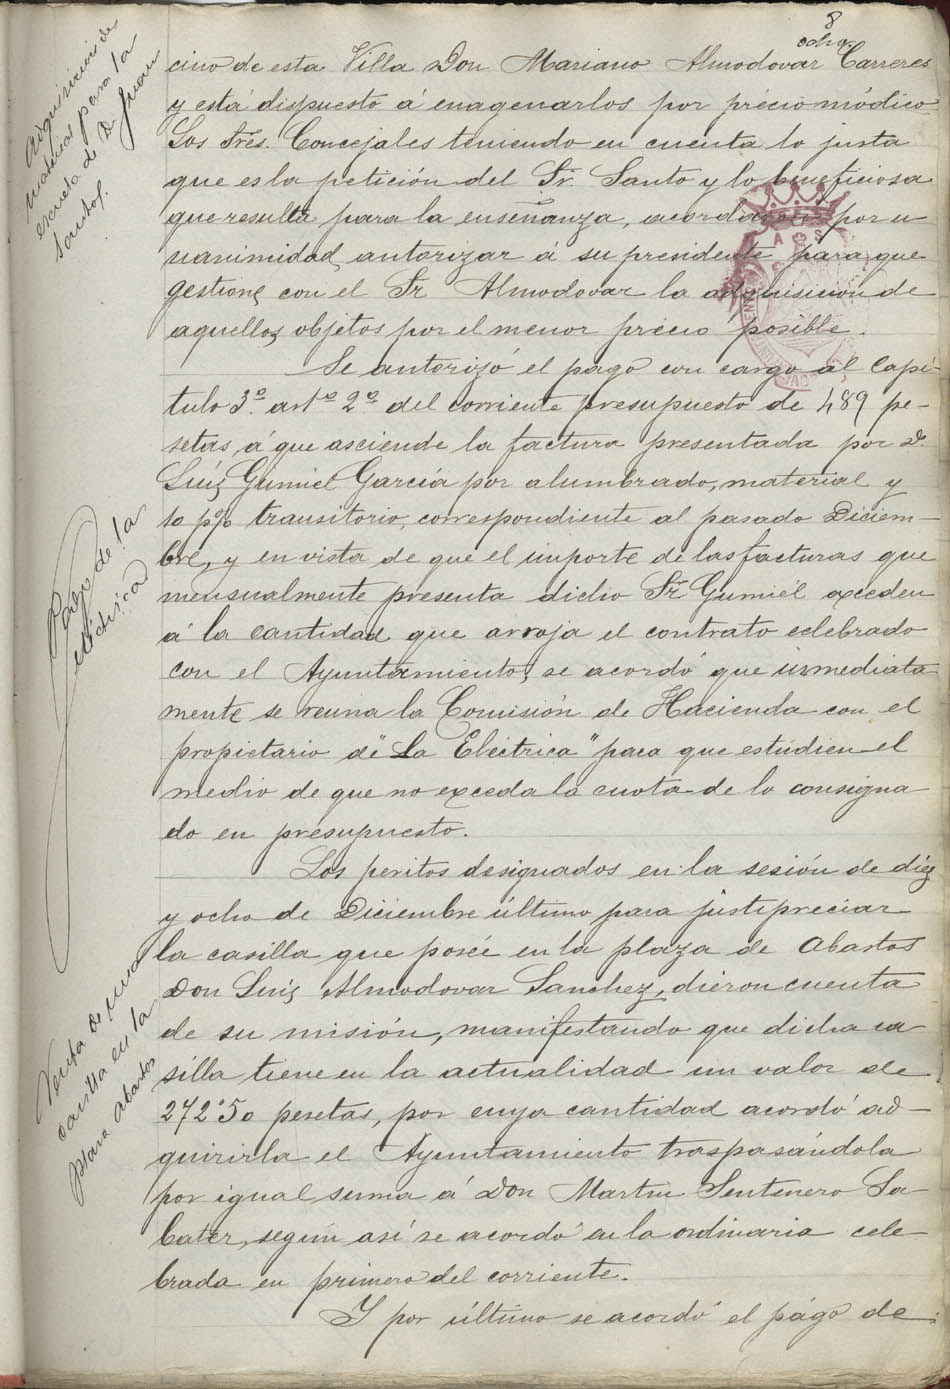 8
ocho
cino de esta Villa Don Mariano Almodovar Carreres
y está dispuesto á enagenarlos por précio módico
Los Sres. Concejales teniendo en cuenta lo justa
que es la petición del Sr. Santo y lo beneficiosa
que resulta para la enseñanza, acordaron por u
nanimidad autorizar á su presidente para que
gestione con el Sr Almodovar la adquisición de
aquellos objetos por el menor précio posible.
Se autorizó el pago con cargo al Capí-
tulo 3º. artº 2º del corriente presupuesto de 489 pe-
setas, á que asciende la factura presentada por D.
Luís Gumiel García por alumbrado, material y
10 p% transitorio, correspondiente al pasado Diciem-
bre, y en vista de que el importe de las facturas que
mensualmente presenta dicho Sr Gumiel exceden
á la cantidad que arroja el contrato celebrado
con el Ayuntamiento, se acordó que inmediata
mente se reuna la Comisión de Hacienda con el
propietario de "La Eléctrica" para que estudien el
medio de que no exceda la cuota de lo consigna
do en presupuesto.
Los peritos designados en la sesión de diez
y ocho de Diciembre último para justipreciar
la casilla que poseé en la plaza de Abastos
Don Luís Almodovar Sanchez, dieron cuenta
de su misión, manifestando que dicha ca
silla tiene en la actualidad un valor de
272'50 pesetas, por cuya cantidad acordó ad-
quirirla el Ayuntamiento traspasándola
por igual suma á Don Martin Sentenero Sa-
bater, según así se acordó en la ordinaria cele-
brada en primero del corriente.
Y por último se acordó el págo de
Adquisición de
material para la
escuela de D Juan
Santos.
Pago de la
eléctrica
Venta de una
casilla en la
plaza Abastos